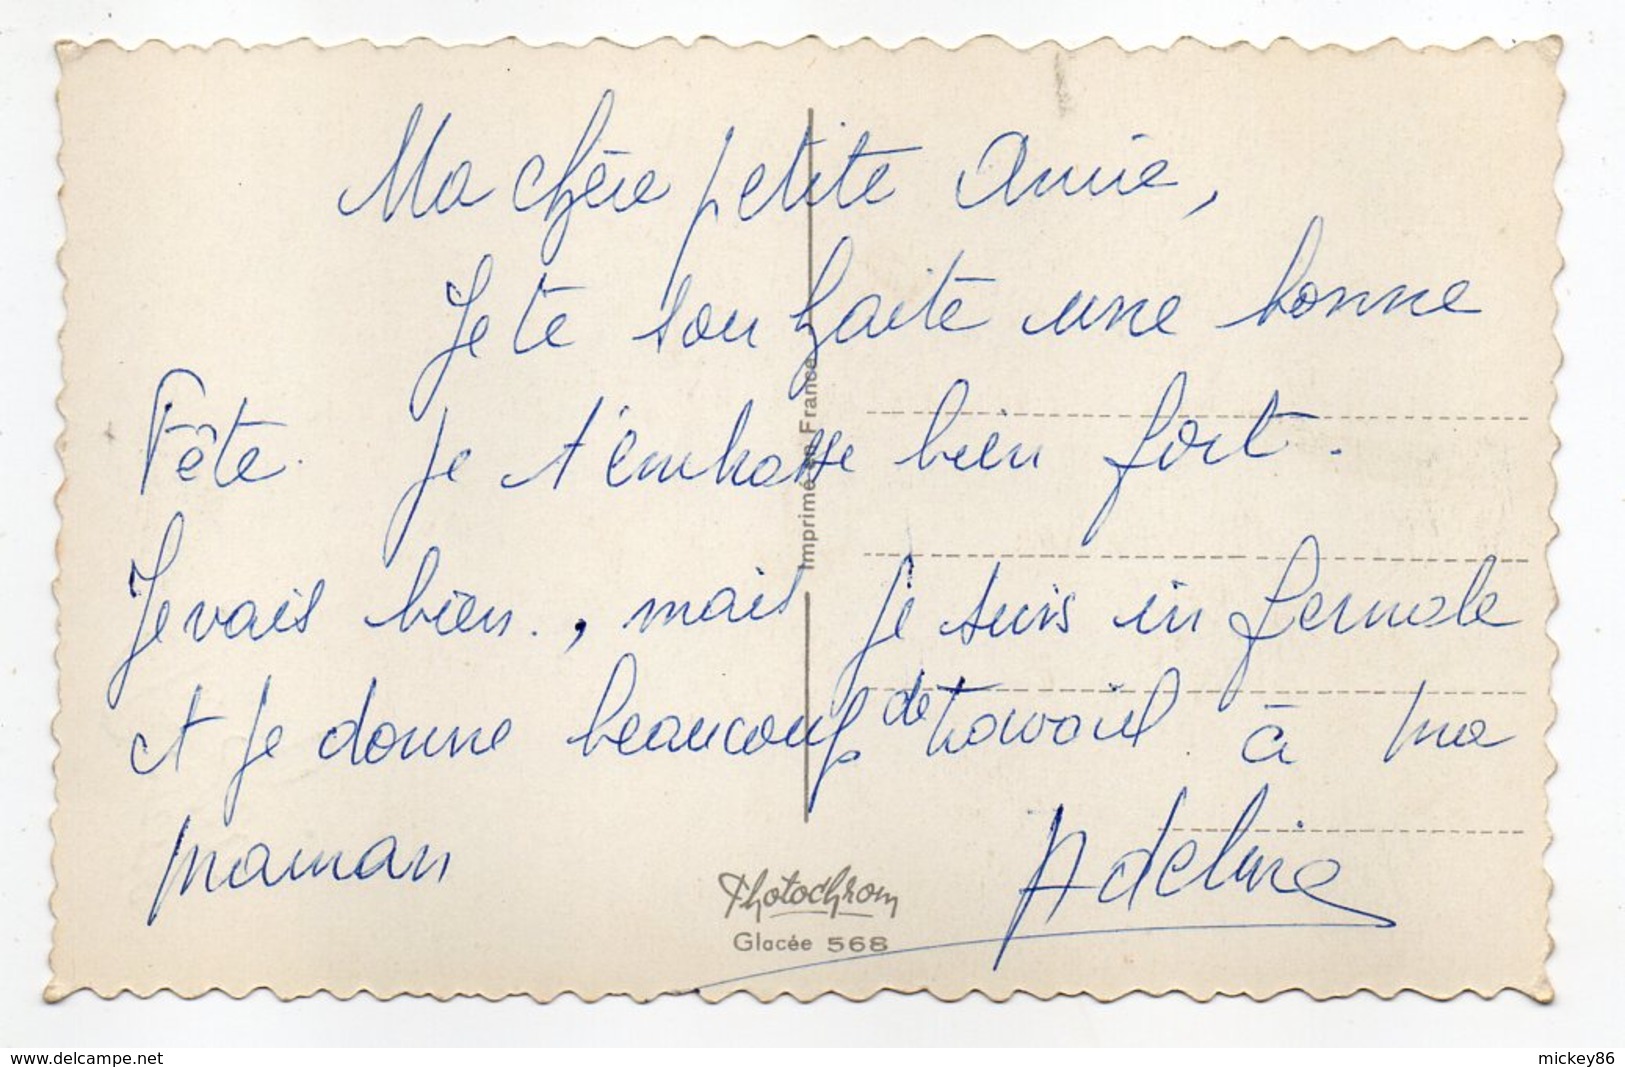 Ma chère petite Amie,
Je te souhaite une bonne
Fête. Je t'embrasse bien fort.
Je vais bien., mais je suis infernale
et je donne beaucoup de travail à ma
maman
Adeline
Imprimé en France
Photochrom
Glacée 568
www.delcampe.net
mickey86